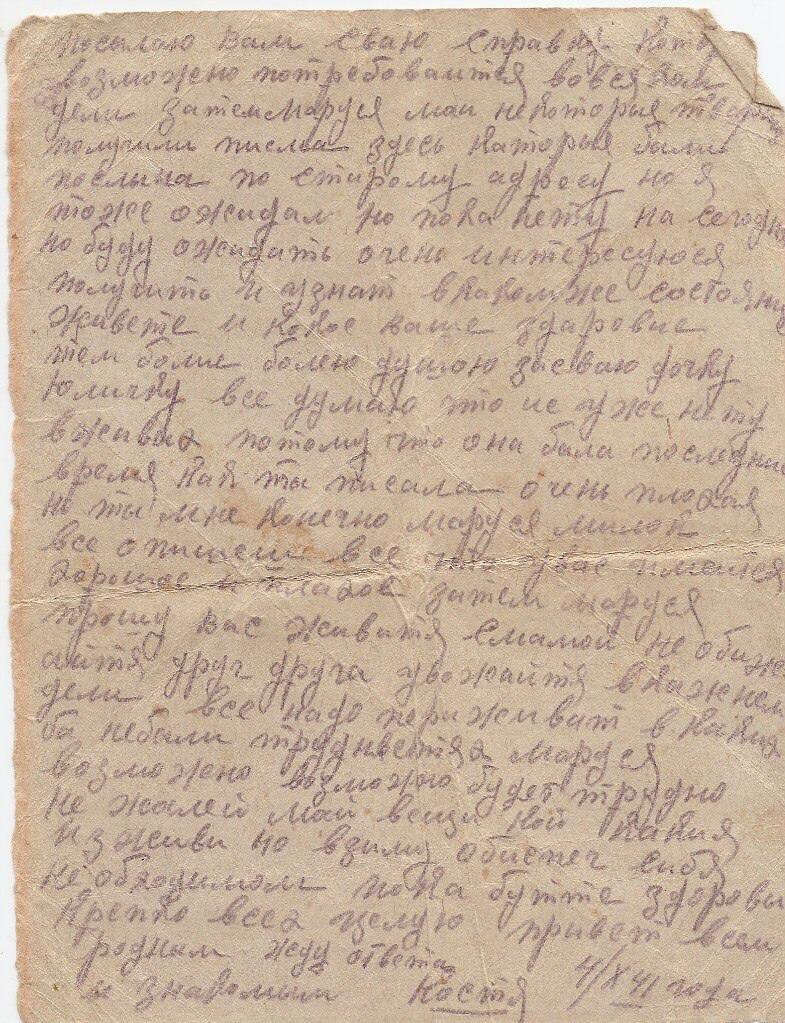 посылаю вам сваю справку
возможено потребоваится вовсяком
дели затем Маруся маи некоторыя
получили писма здесь каторыя были
послына по старому адросу но я
тоже ожидал но пока нету на сегодня
но буду ожидать очень интересуюся
получить и узнат вкакомже состояни
живете и какое ваше здаровие
тем более болею душою засваю дочку
Юличку все думаю что ие уже нету
вживых потому что она была последние
время как ты писала очень плохая
но ты мне конечно Маруся милой
все опишеш все что увас имеится
хорошое и плахое затем маруся
прошу вас живитя смамой не обиж
айтя друг друга увожайтя вкажнем
дели все надо периживат в каких
ба небали труднвстях Маруся
возможено возможно будет трудно
не жалей маи вещи кои какия
изживи но взили обиспеч сибя
необходимом пока бутте здоровы
крепко всех целую привет всем
родным жду ответа
и знакомым Костя 4/X 41 года